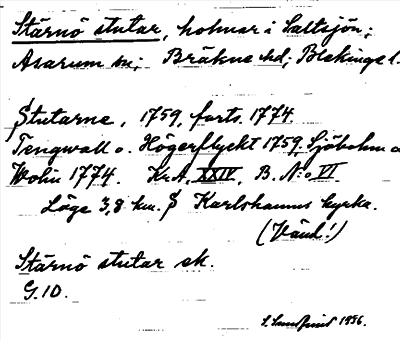 Stärnö stutar, holmar i Saltsjön;
Asarum sn; Bräkne hd; Blekinge l.
Stutarne, 1759, forts. 1774
Tengwall o. Högerflyckt 1759, Sjöbohm o
Wolin 1774. Kr.A. XXIV, B. N:o VI.
Läge 3,8 km. S Karlshamns kyrka.
(Vänd!)
Stärnö stutar sk.
G.10.
1936.